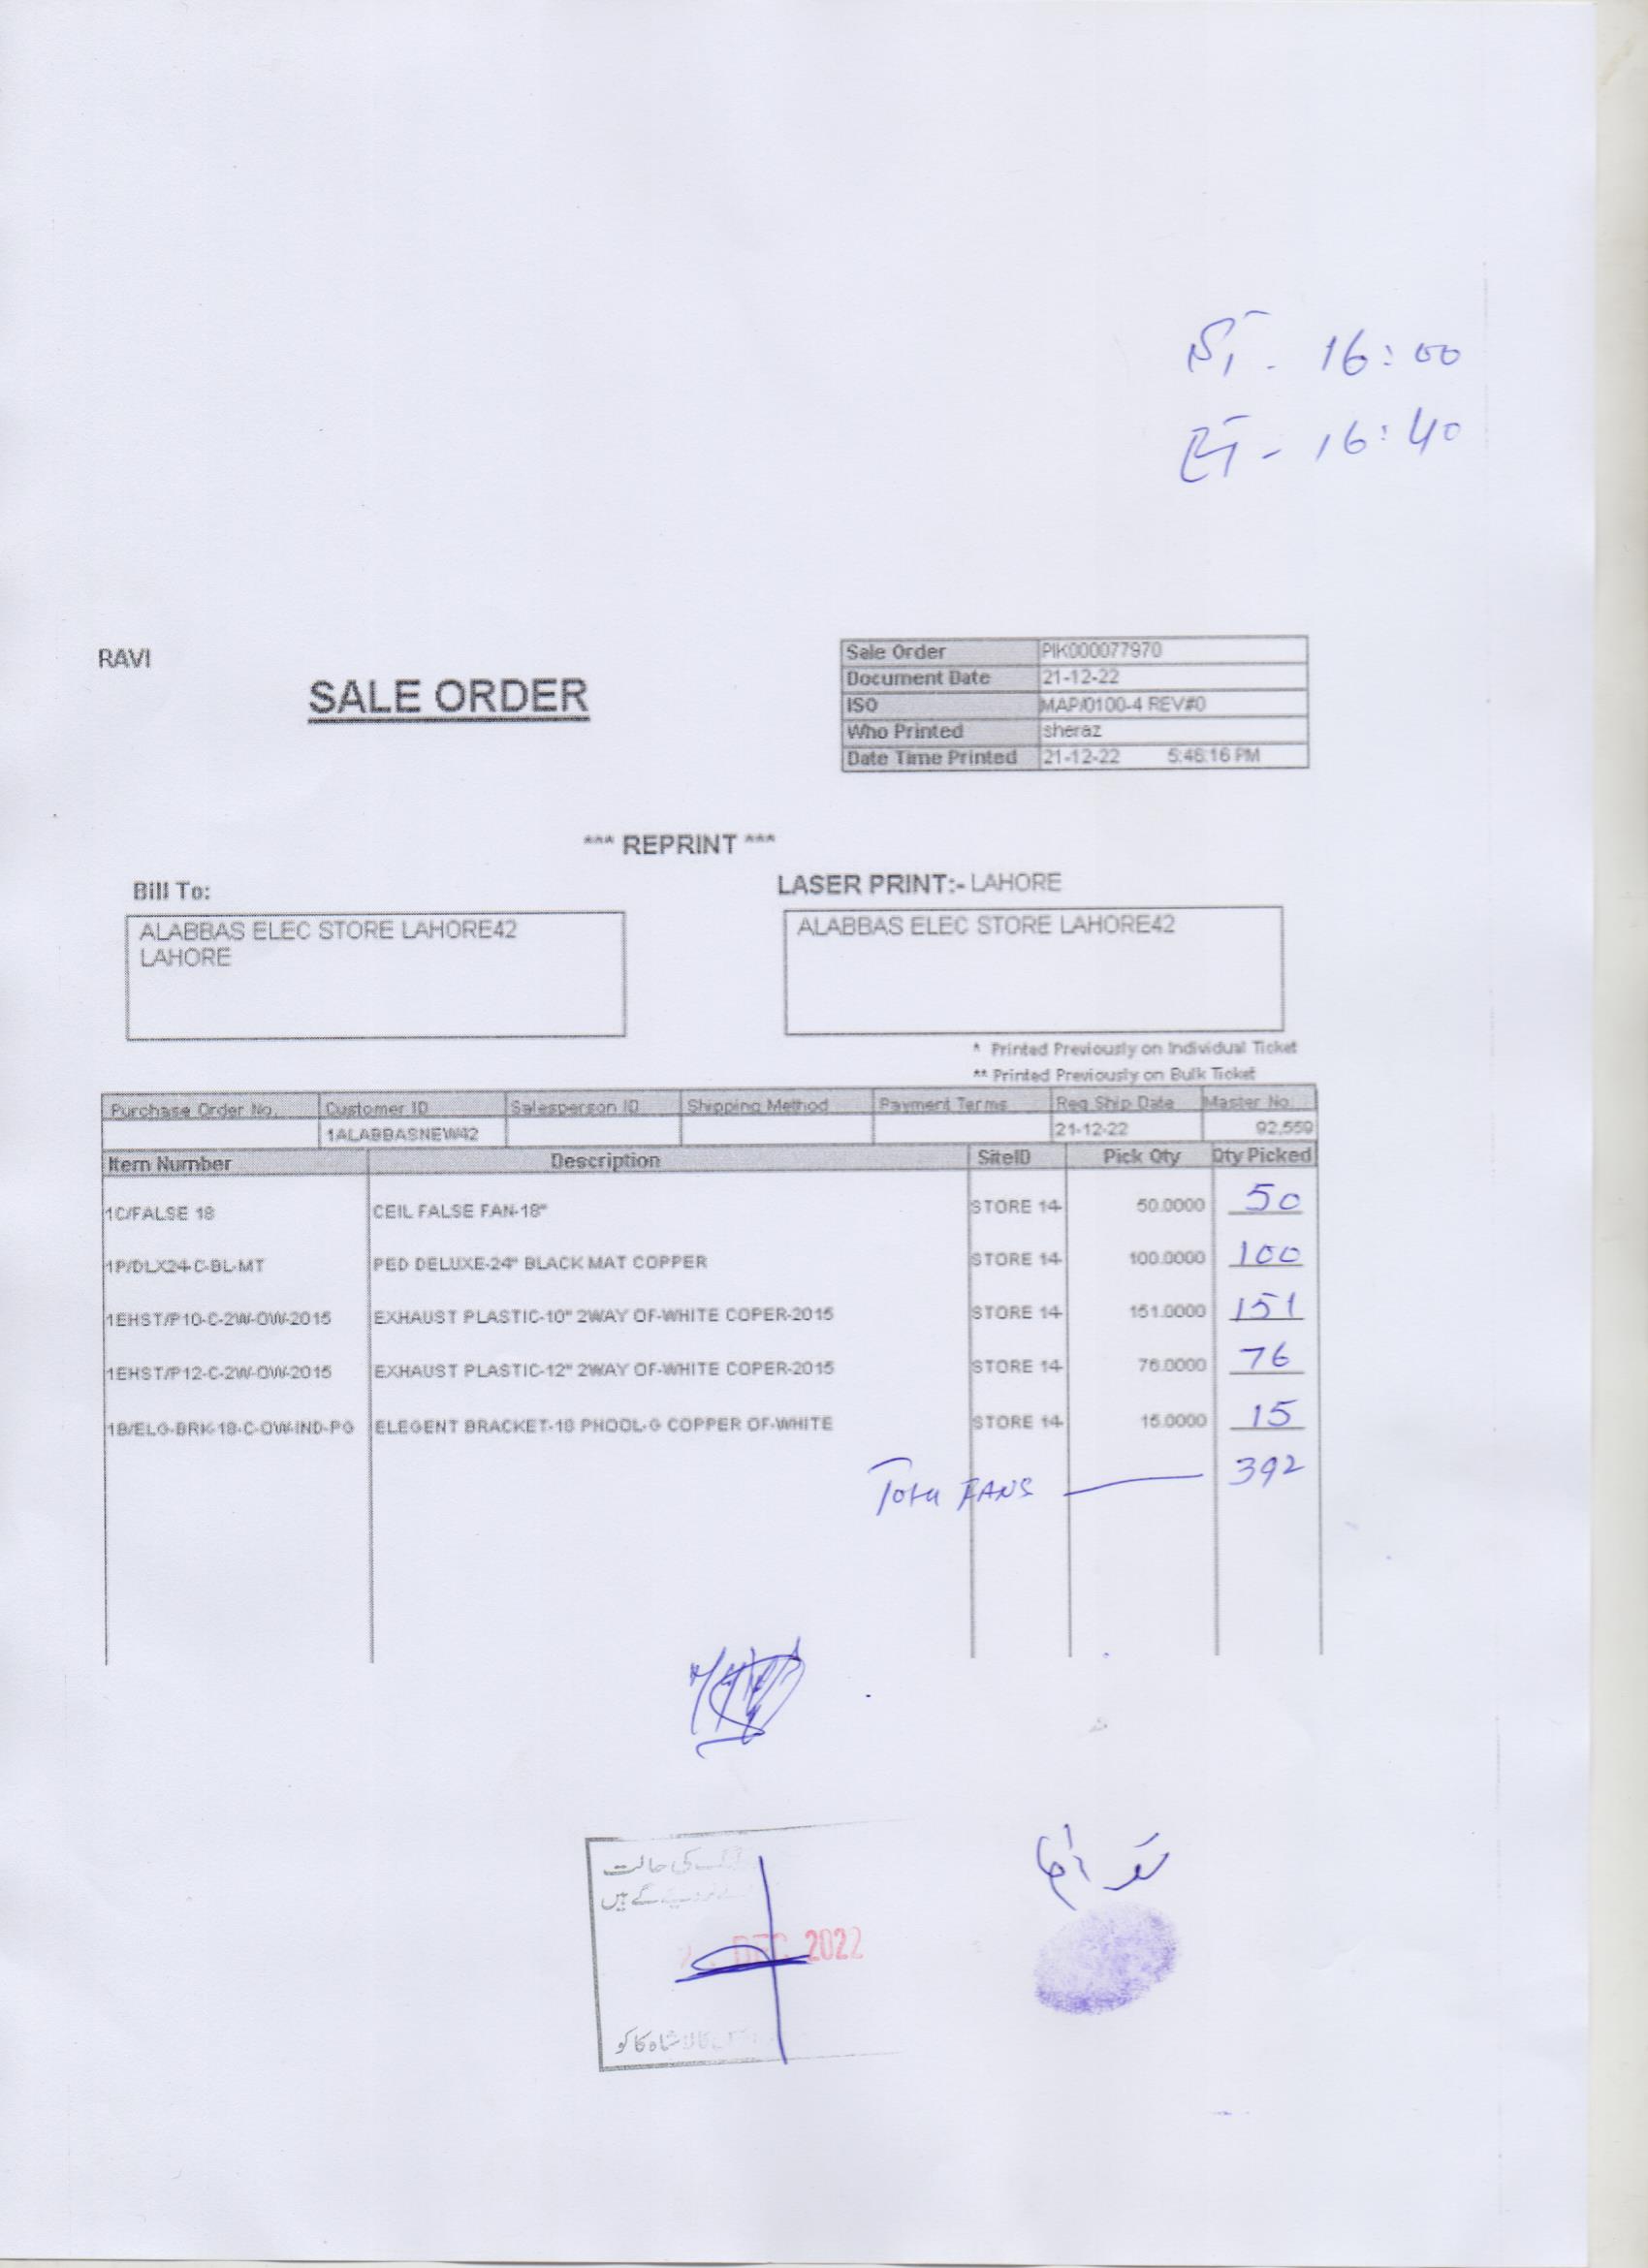 ST - 16:00
ET - 16:40
RAVI
SALE ORDER
Sale Order PIK000077970
Document Date 21-12-22
ISO MAP/0100-4 REV#0
Who Printed sheraz
Date Time Printed 21-12-22 5:46:16 PM
*** REPRINT ***
Bill To:
ALABBAS ELEC STORE LAHORE42
LAHORE
LASER PRINT:- LAHORE
ALABBAS ELEC STORE LAHORE42
* Printed Previously on Individual Ticket
** Printed Previously on Bulk Ticket
Purchase Order No. Customer ID Salesperson ID Shipping Method Payment Terms Req Ship Date Master No.
1ALABBASNEW42 21-12-22 92,559
Item Number Description SiteID Pick Qty Qty Picked
1C/FALSE 18 CEIL FALSE FAN-18" STORE 14 50.0000 50
1P/DLX24-C-BL-MT PED DELUXE-24" BLACK MAT COPPER STORE 14 100.0000 100
1EHST/P10-C-2W-OW-2015 EXHAUST PLASTIC-10" 2WAY OF-WHITE COPER-2015 STORE 14 151.0000 151
1EHST/P12-C-2W-OW-2015 EXHAUST PLASTIC-12" 2WAY OF-WHITE COPER-2015 STORE 14 76.0000 76
1B/ELG-BRK-18-C-OW-IND-PG ELEGENT BRACKET-18 PHOOL-G COPPER OF-WHITE STORE 14 15.0000 15
Total FANS — 392
کی حالت
گے ہیں
DEC 2022